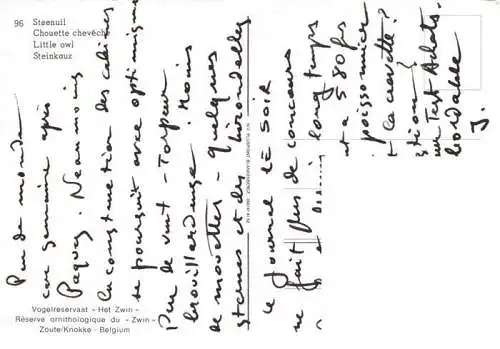 96 Steenuil
Chouette chevêche
Little owl
Steinkauz
Peu de monde
car semaine après
Paques. Néanmoins
la construction des cabines
se poursuit avec optimisme
Peu de vent - Torpeur
brouillardeuse. Moins
de mouettes - quelques
sternes et des hirondelles
Le journal LE SOIR
ne fait plus de concours
et
long temps
580 frs
poissonnier
la crevette?
Test Achats
abordable
J.
Vogelreservaat - Het Zwin -
Réserve ornithologique du - Zwin -
Zoute/Knokke - Belgium